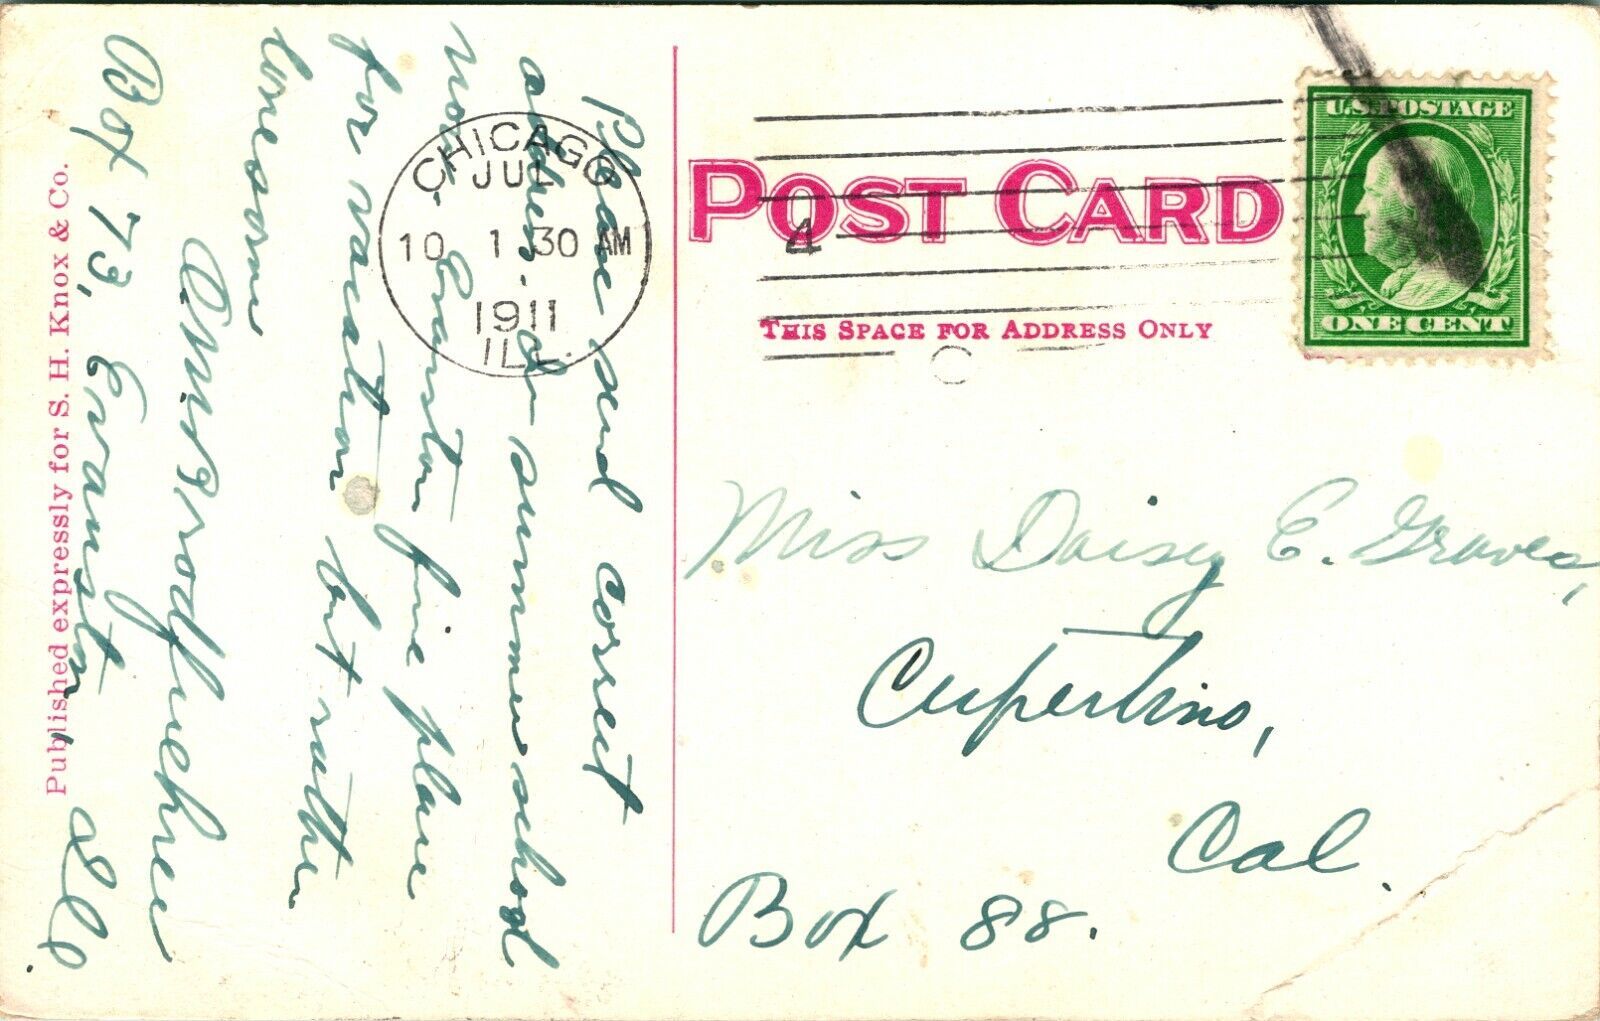 Please send correct
address. In summer school
now. Evanston fine place
for vacation but rather
lonesome
Box 73, Evanston, Ill.
Published expressly for S. H. Knox & Co.
CHICAGO, ILL.
JUL
10 1 30 AM
1911
4
POST CARD
THIS SPACE FOR ADDRESS ONLY
U.S. POSTAGE
ONE CENT
Miss Daisy E. Graves,
Cupertino,
Cal.
Box 88.